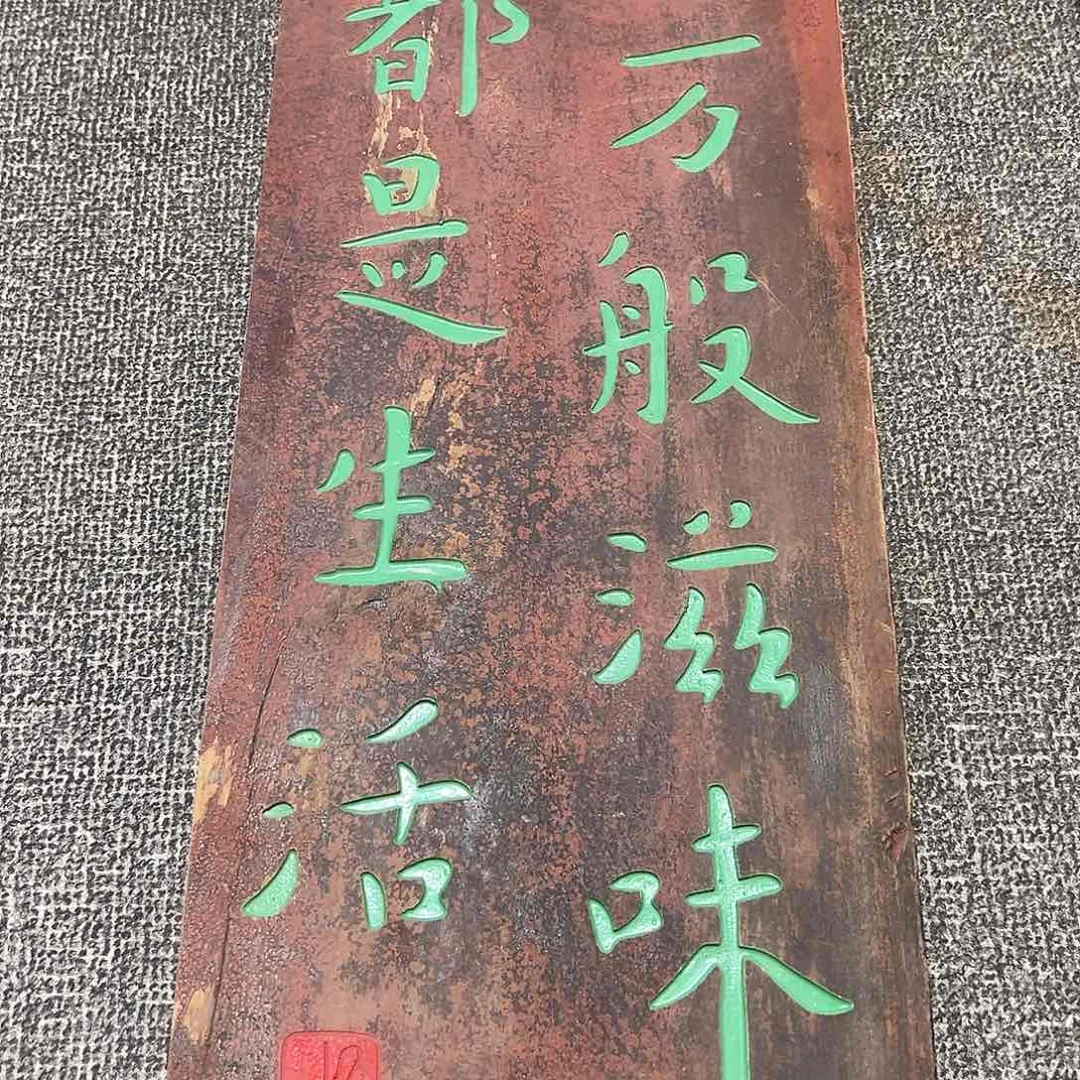 万般滋味
都是生活